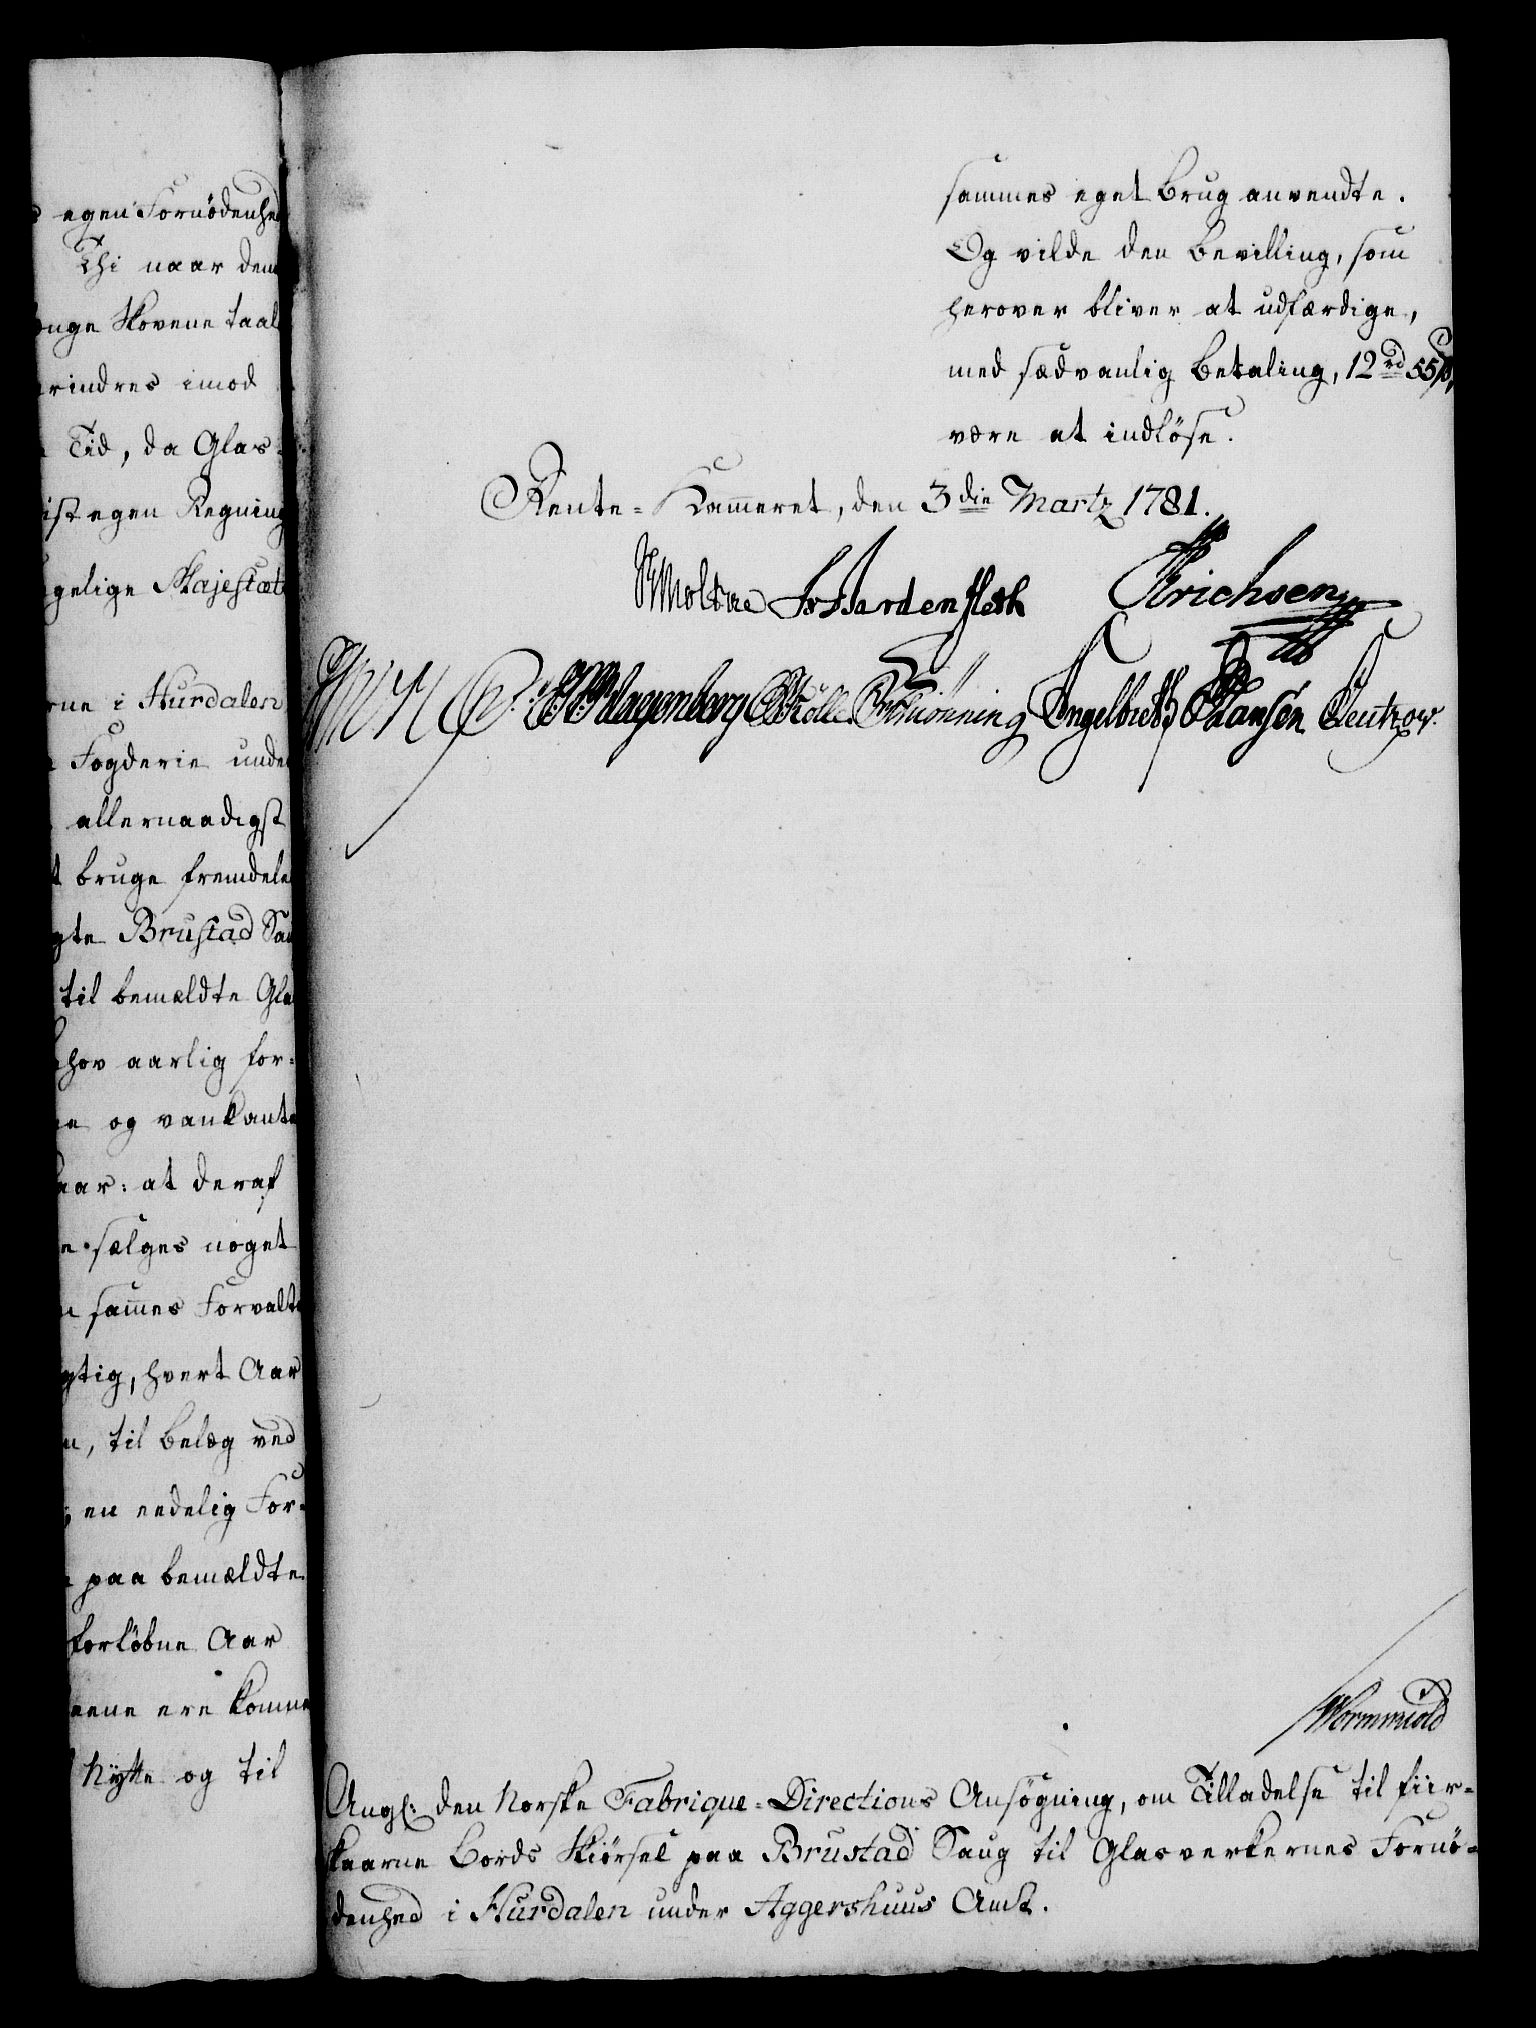 egen Fornödenhed
Thi naar dem
længe Skovene taal
erindres imod
Tid, da Glas-
egen Regning
Majestæt
i Hurdalen
Fogderie under
allernaadigst
bruge fremdeles
Brustad Sau
til bemældte Gla
aarlig for-
og vankante
at deraf
sælges noget
sam̄es Forvalte
hvert Aar
til belæg ved
en eedelig For-
paa bemældte
forløbne Aar
ere komne
Nytte og til
sammes eget brug anvendte.
Og vilde den bevilling, som
herover bliver at udfærdige,
med sædvanlig betaling, 12 rd 55 ß,
være at indlöse.
Rente-Kam̄eret, den 3die Martz 1781.
Moltke Bardenfleth Erichsen
Klagenberg Kölle Brünning Engelbrecht Hansen Leutzow.
Wormsuold
Angl: den Norske Fabrique-Directions Ansögning, om Tilladelse til fiir-
skaarne Bords Skiörsel paa Brustad Saug til Glasverkernes Fornö-
denhed i Hurdalen under Aggershuus Amt.